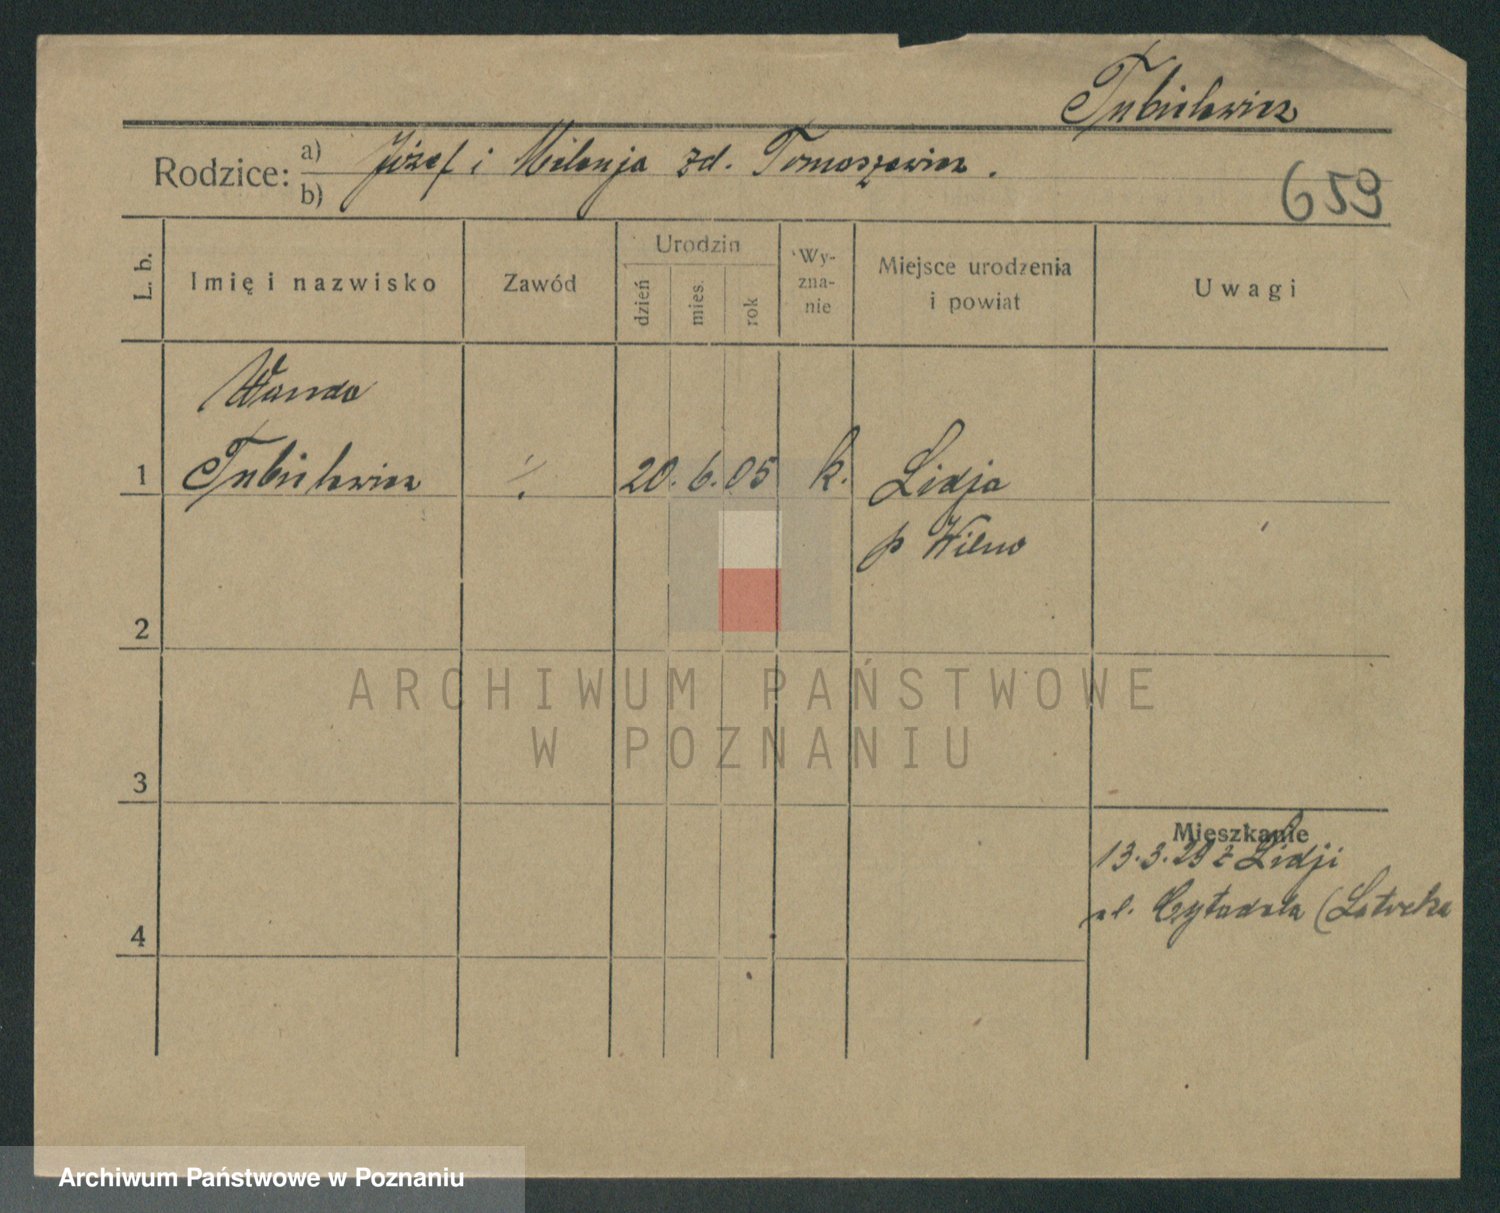 Tubielewicz
Rodzice: a) Józef i Milenja zd. Tomaszewicz.
b)
659
L. b.
Imię i nazwisko
Zawód
Urodzin
dzień
mies.
rok
Wy-
zna-
nie
Miejsce urodzenia
i powiat
Uwagi
Wanda
1 Tubielewicz ./. 20. 6. 05 k. Lidja
p Wilno
2
3
4
Mieszkanie
13.3.29 z Lidji
ul. Cytadela
ARCHIWUM PAŃSTWOWE
W POZNANIU
Archiwum Państwowe w Poznaniu